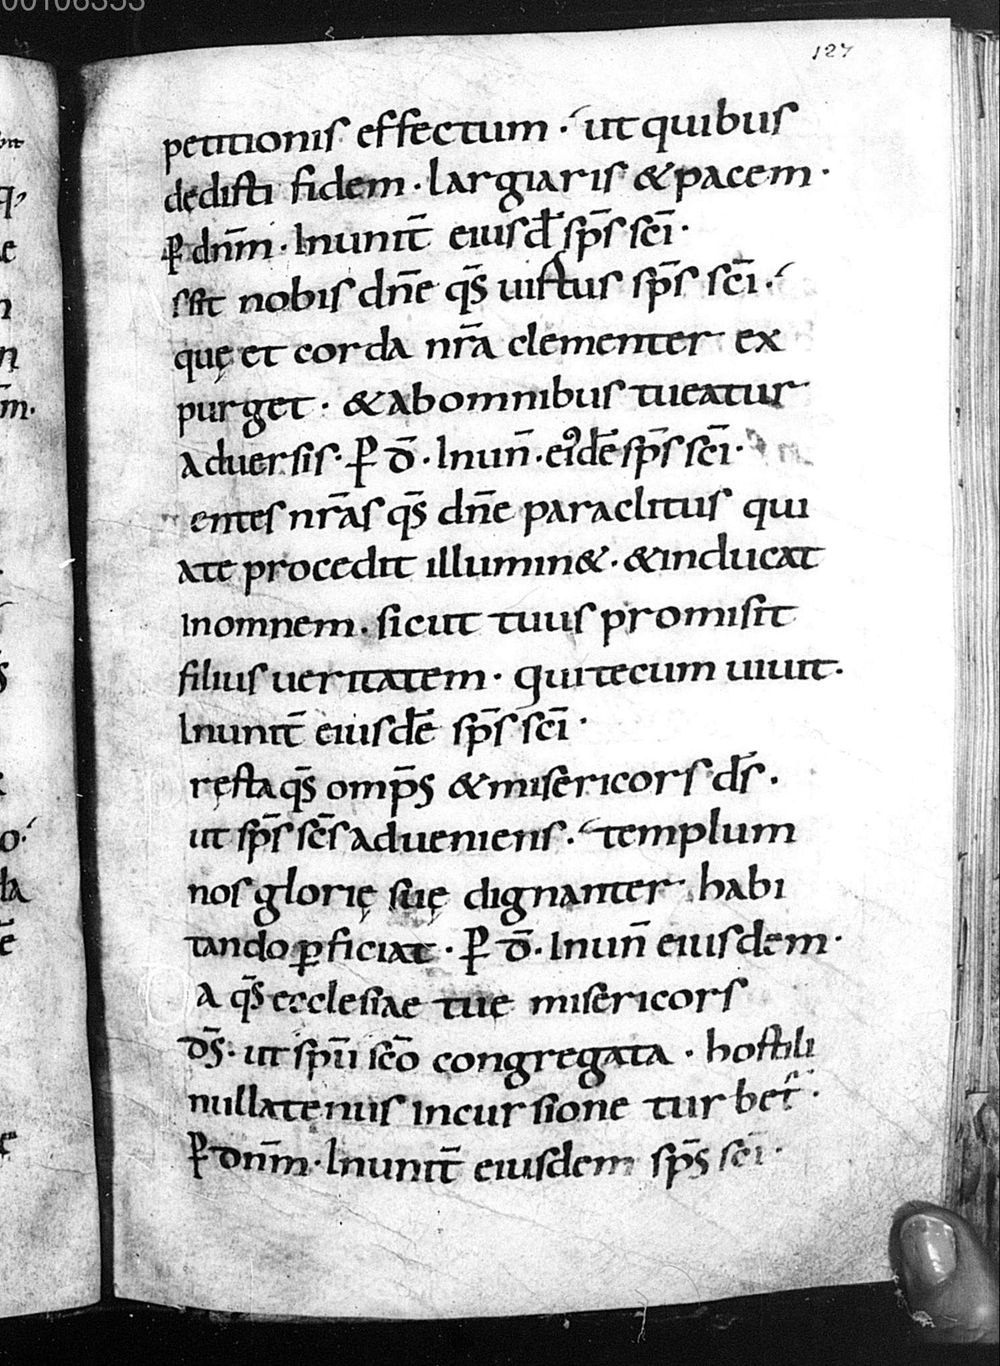 00106353
127
petitionis effectum · ut quibus
dedisti fidem · largiaris & pacem ·
P̱ dnm̄ · In unit̄ eiusd̄ sp̄s sc̄i ·
ssit nobis dn̄e qs̄ uirtus sp̄s sc̄i ·
quę et corda nr̄a clementer ex
purget · & ab omnibus tueatur
aduersis · P̱ d̄ · In un̄ · eiꝰdē sp̄s sc̄i ·
entes nr̄as qs̄ dn̄e paraclitus qui
ate procedit illumin& · & inducat
In omnem · sicut tuus promisit
filius ueritatem · qui tecum uiuit ·
In unit̄ eiusdē sp̄s sc̄i ·
ręsta qs̄ omp̄s & misericors ds̄ ·
ut sp̄s sc̄s adueniens · templum
nos glorię suę dignanter habi
tando ꝑficiat · P̱ d̄ · In un̄ eiusdem ·
a qs̄ ecclesiae tue misericors
ds̄ · ut spū scō congregata · hostili
nullatenus incursione turbet᷑ ·
P̱ dnm̄ · In unit̄ eiusdem sp̄s sc̄i ·